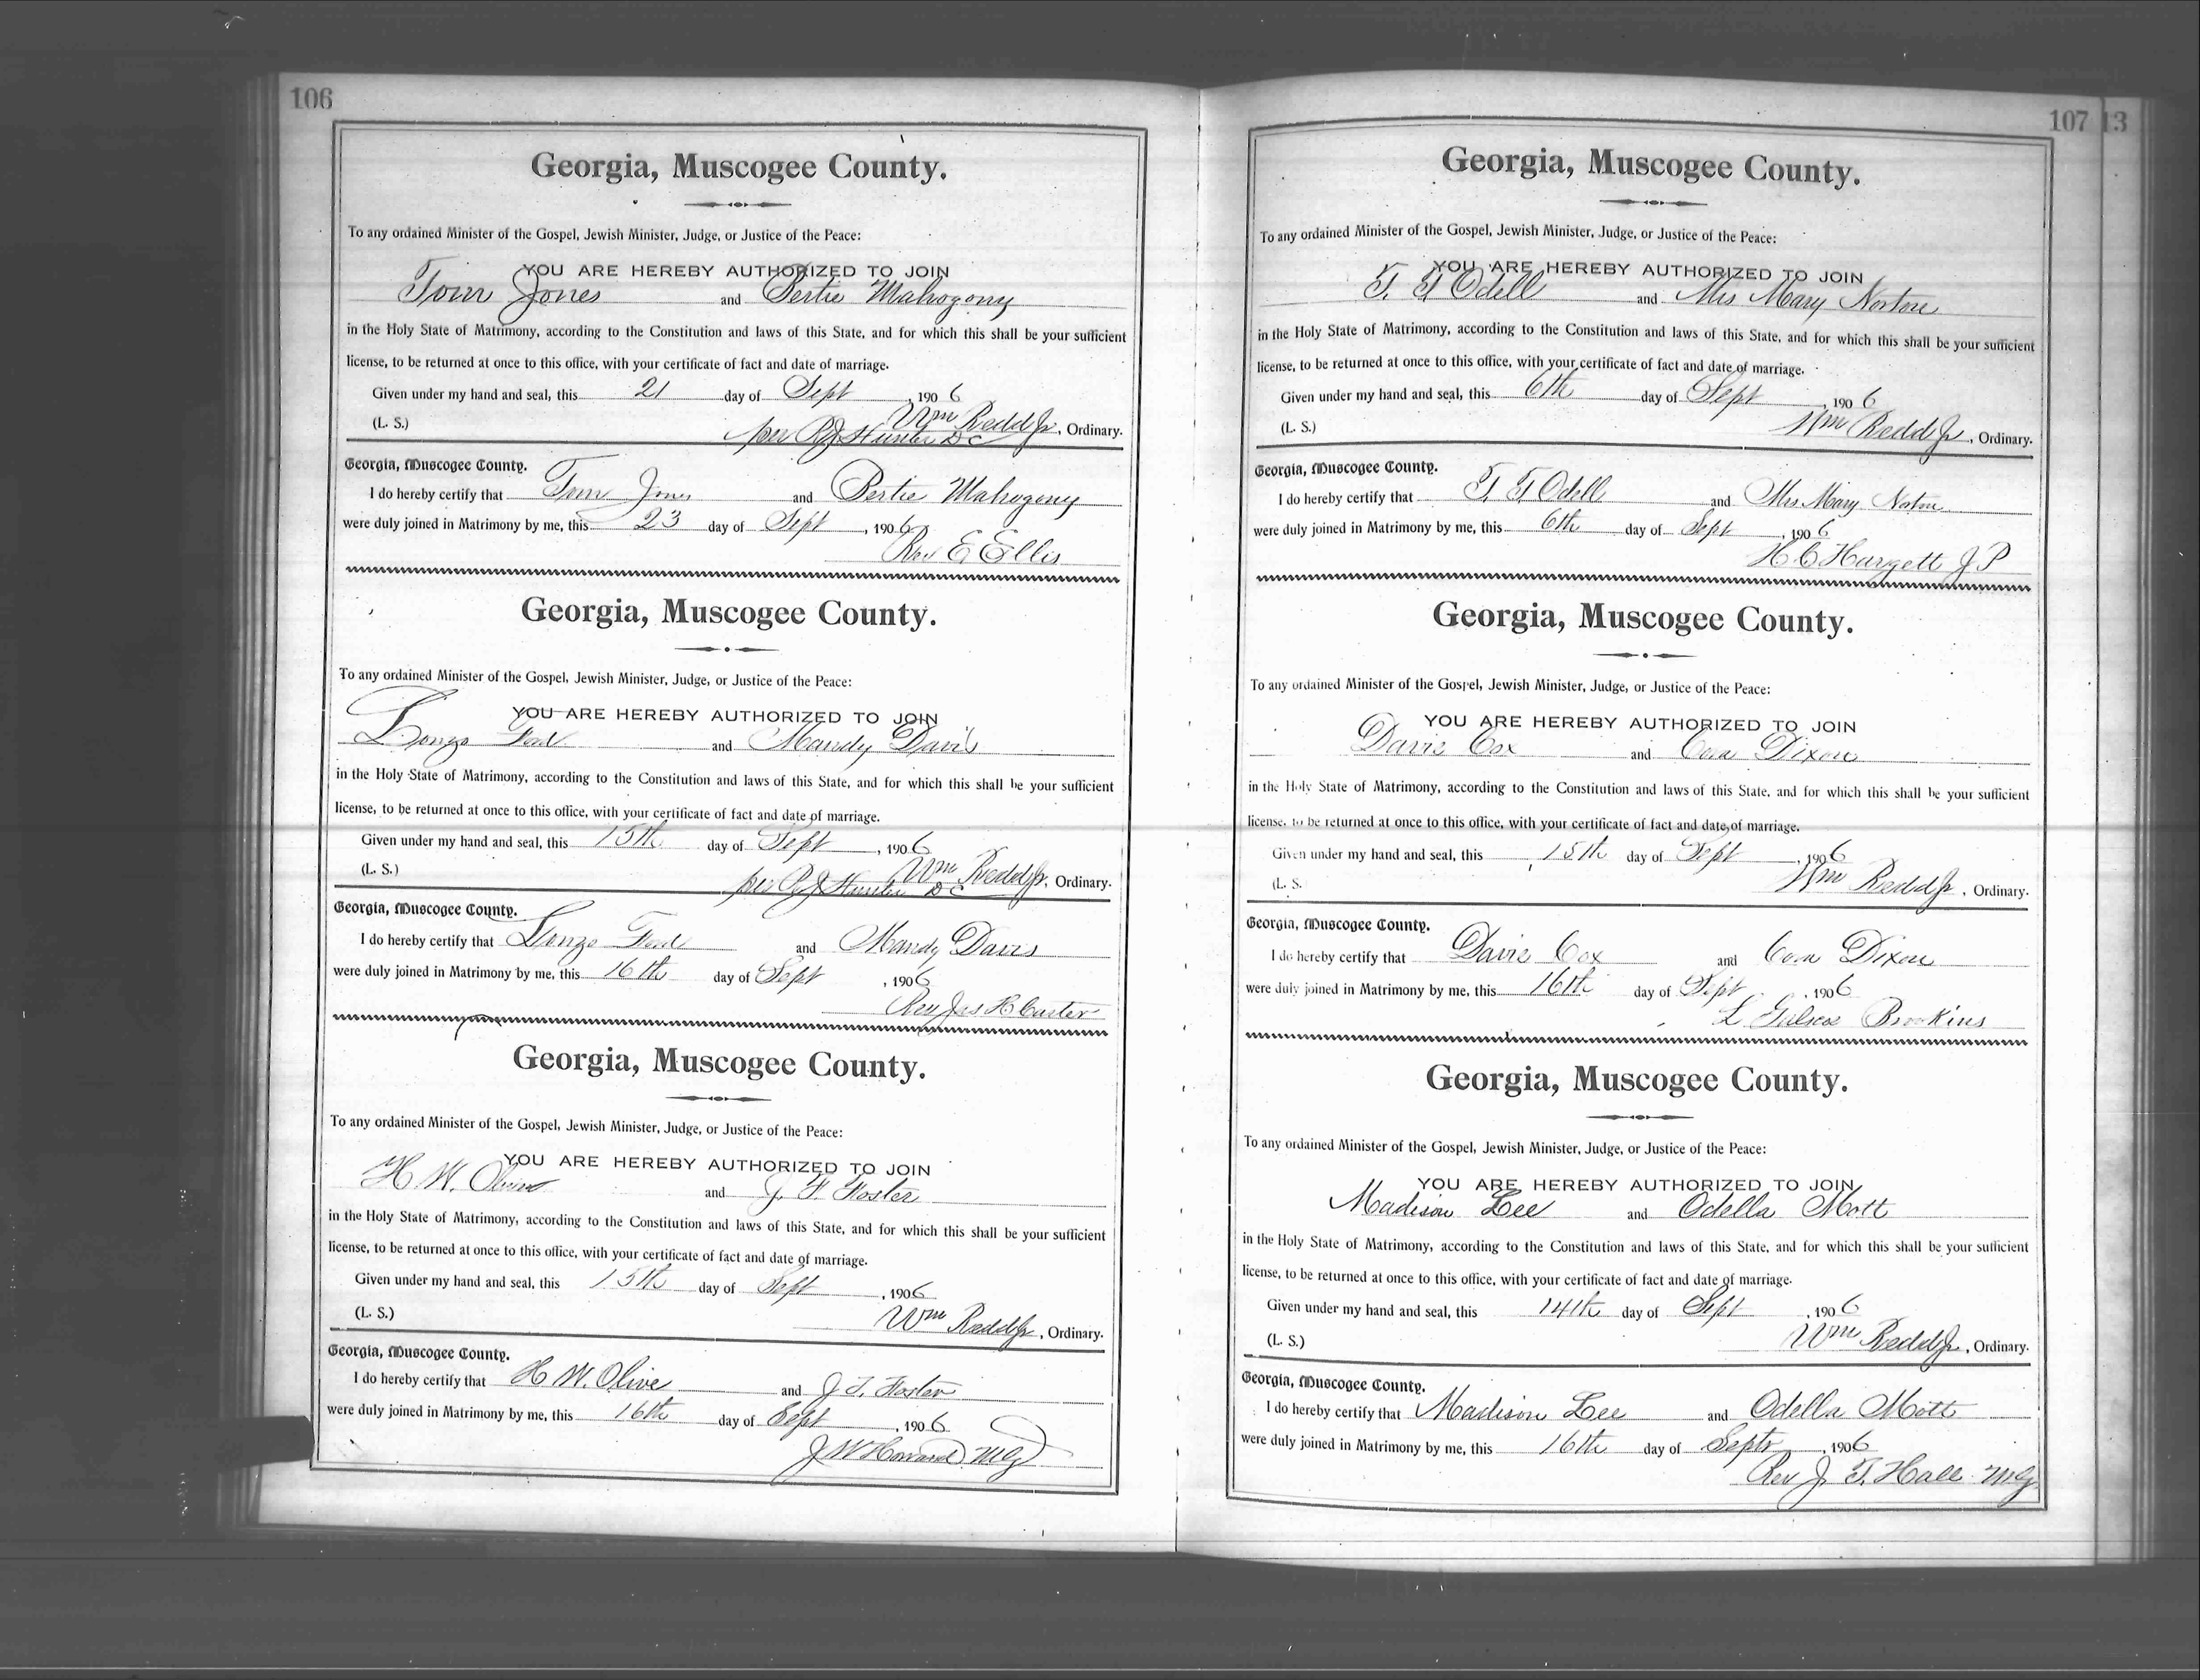 106
Georgia, Muscogee County.
To any ordained Minister of the Gospel, Jewish Minister, Judge, or Justice of the Peace:
YOU ARE HEREBY AUTHORIZED TO JOIN
Tom Jones and Pertie Mahogony
in the Holy State of Matrimony, according to the Constitution and laws of this State, and for which this shall be your sufficient
license, to be returned at once to this office, with your certificate of fact and date of marriage.
Given under my hand and seal, this 21 day of Sept, 1906
Wm Redd Jr, Ordinary.
(L. S.) per R J Hunter D C
Georgia, Muscogee County.
I do hereby certify that Tom Jones and Pertie Mahogony
were duly joined in Matrimony by me, this 23 day of Sept, 1906
Rev E Ellis
Georgia, Muscogee County.
To any ordained Minister of the Gospel, Jewish Minister, Judge, or Justice of the Peace:
YOU ARE HEREBY AUTHORIZED TO JOIN
Lonzo Ford and Mandy Davis
in the Holy State of Matrimony, according to the Constitution and laws of this State, and for which this shall be your sufficient
license, to be returned at once to this office, with your certificate of fact and date of marriage.
Given under my hand and seal, this 15th day of Sept, 1906
Wm Redd Jr, Ordinary.
(L. S.) per R J Hunter D C
Georgia, Muscogee County.
I do hereby certify that Lonzo Ford and Mandy Davis
were duly joined in Matrimony by me, this 16th day of Sept, 1906
Rev Jas R Carter
Georgia, Muscogee County.
To any ordained Minister of the Gospel, Jewish Minister, Judge, or Justice of the Peace:
YOU ARE HEREBY AUTHORIZED TO JOIN
H. W. Olive and J. F. Foster
in the Holy State of Matrimony, according to the Constitution and laws of this State, and for which this shall be your sufficient
license, to be returned at once to this office, with your certificate of fact and date of marriage.
Given under my hand and seal, this 15th day of Sept, 1906
(L. S.) Wm Redd Jr, Ordinary.
Georgia, Muscogee County.
I do hereby certify that H W. Olive and J F. Foster
were duly joined in Matrimony by me, this 16th day of Sept, 1906
J W Howard MG
107 13
Georgia, Muscogee County.
To any ordained Minister of the Gospel, Jewish Minister, Judge, or Justice of the Peace:
YOU ARE HEREBY AUTHORIZED TO JOIN
T. T Odell and Mrs Mary Norton
in the Holy State of Matrimony, according to the Constitution and laws of this State, and for which this shall be your sufficient
license, to be returned at once to this office, with your certificate of fact and date of marriage.
Given under my hand and seal, this 6th day of Sept, 1906
(L. S.) Wm Redd Jr, Ordinary.
Georgia, Muscogee County.
I do hereby certify that T. T Odell and Mrs Mary Norton
were duly joined in Matrimony by me, this 6th day of Sept, 1906
H. C Hargett J P
Georgia, Muscogee County.
To any ordained Minister of the Gospel, Jewish Minister, Judge, or Justice of the Peace:
YOU ARE HEREBY AUTHORIZED TO JOIN
Davis Cox and Cora Dixon
in the Holy State of Matrimony, according to the Constitution and laws of this State, and for which this shall be your sufficient
license, to be returned at once to this office, with your certificate of fact and date of marriage.
Given under my hand and seal, this 15th day of Sept, 1906
(L. S. Wm Redd Jr, Ordinary.
Georgia, Muscogee County.
I do hereby certify that Davis Cox and Cora Dixon
were duly joined in Matrimony by me, this 16th day of Sept, 1906
L Brookins
Georgia, Muscogee County.
To any ordained Minister of the Gospel, Jewish Minister, Judge, or Justice of the Peace:
YOU ARE HEREBY AUTHORIZED TO JOIN
Madison Lee and Odella Mott
in the Holy State of Matrimony, according to the Constitution and laws of this State, and for which this shall be your sufficient
license, to be returned at once to this office, with your certificate of fact and date of marriage.
Given under my hand and seal, this 14th day of Sept, 1906
(L. S.) Wm Redd Jr, Ordinary.
Georgia, Muscogee County.
I do hereby certify that Madison Lee and Odella Mott
were duly joined in Matrimony by me, this 16th day of Septr, 1906
Rev J. T. Hall MG